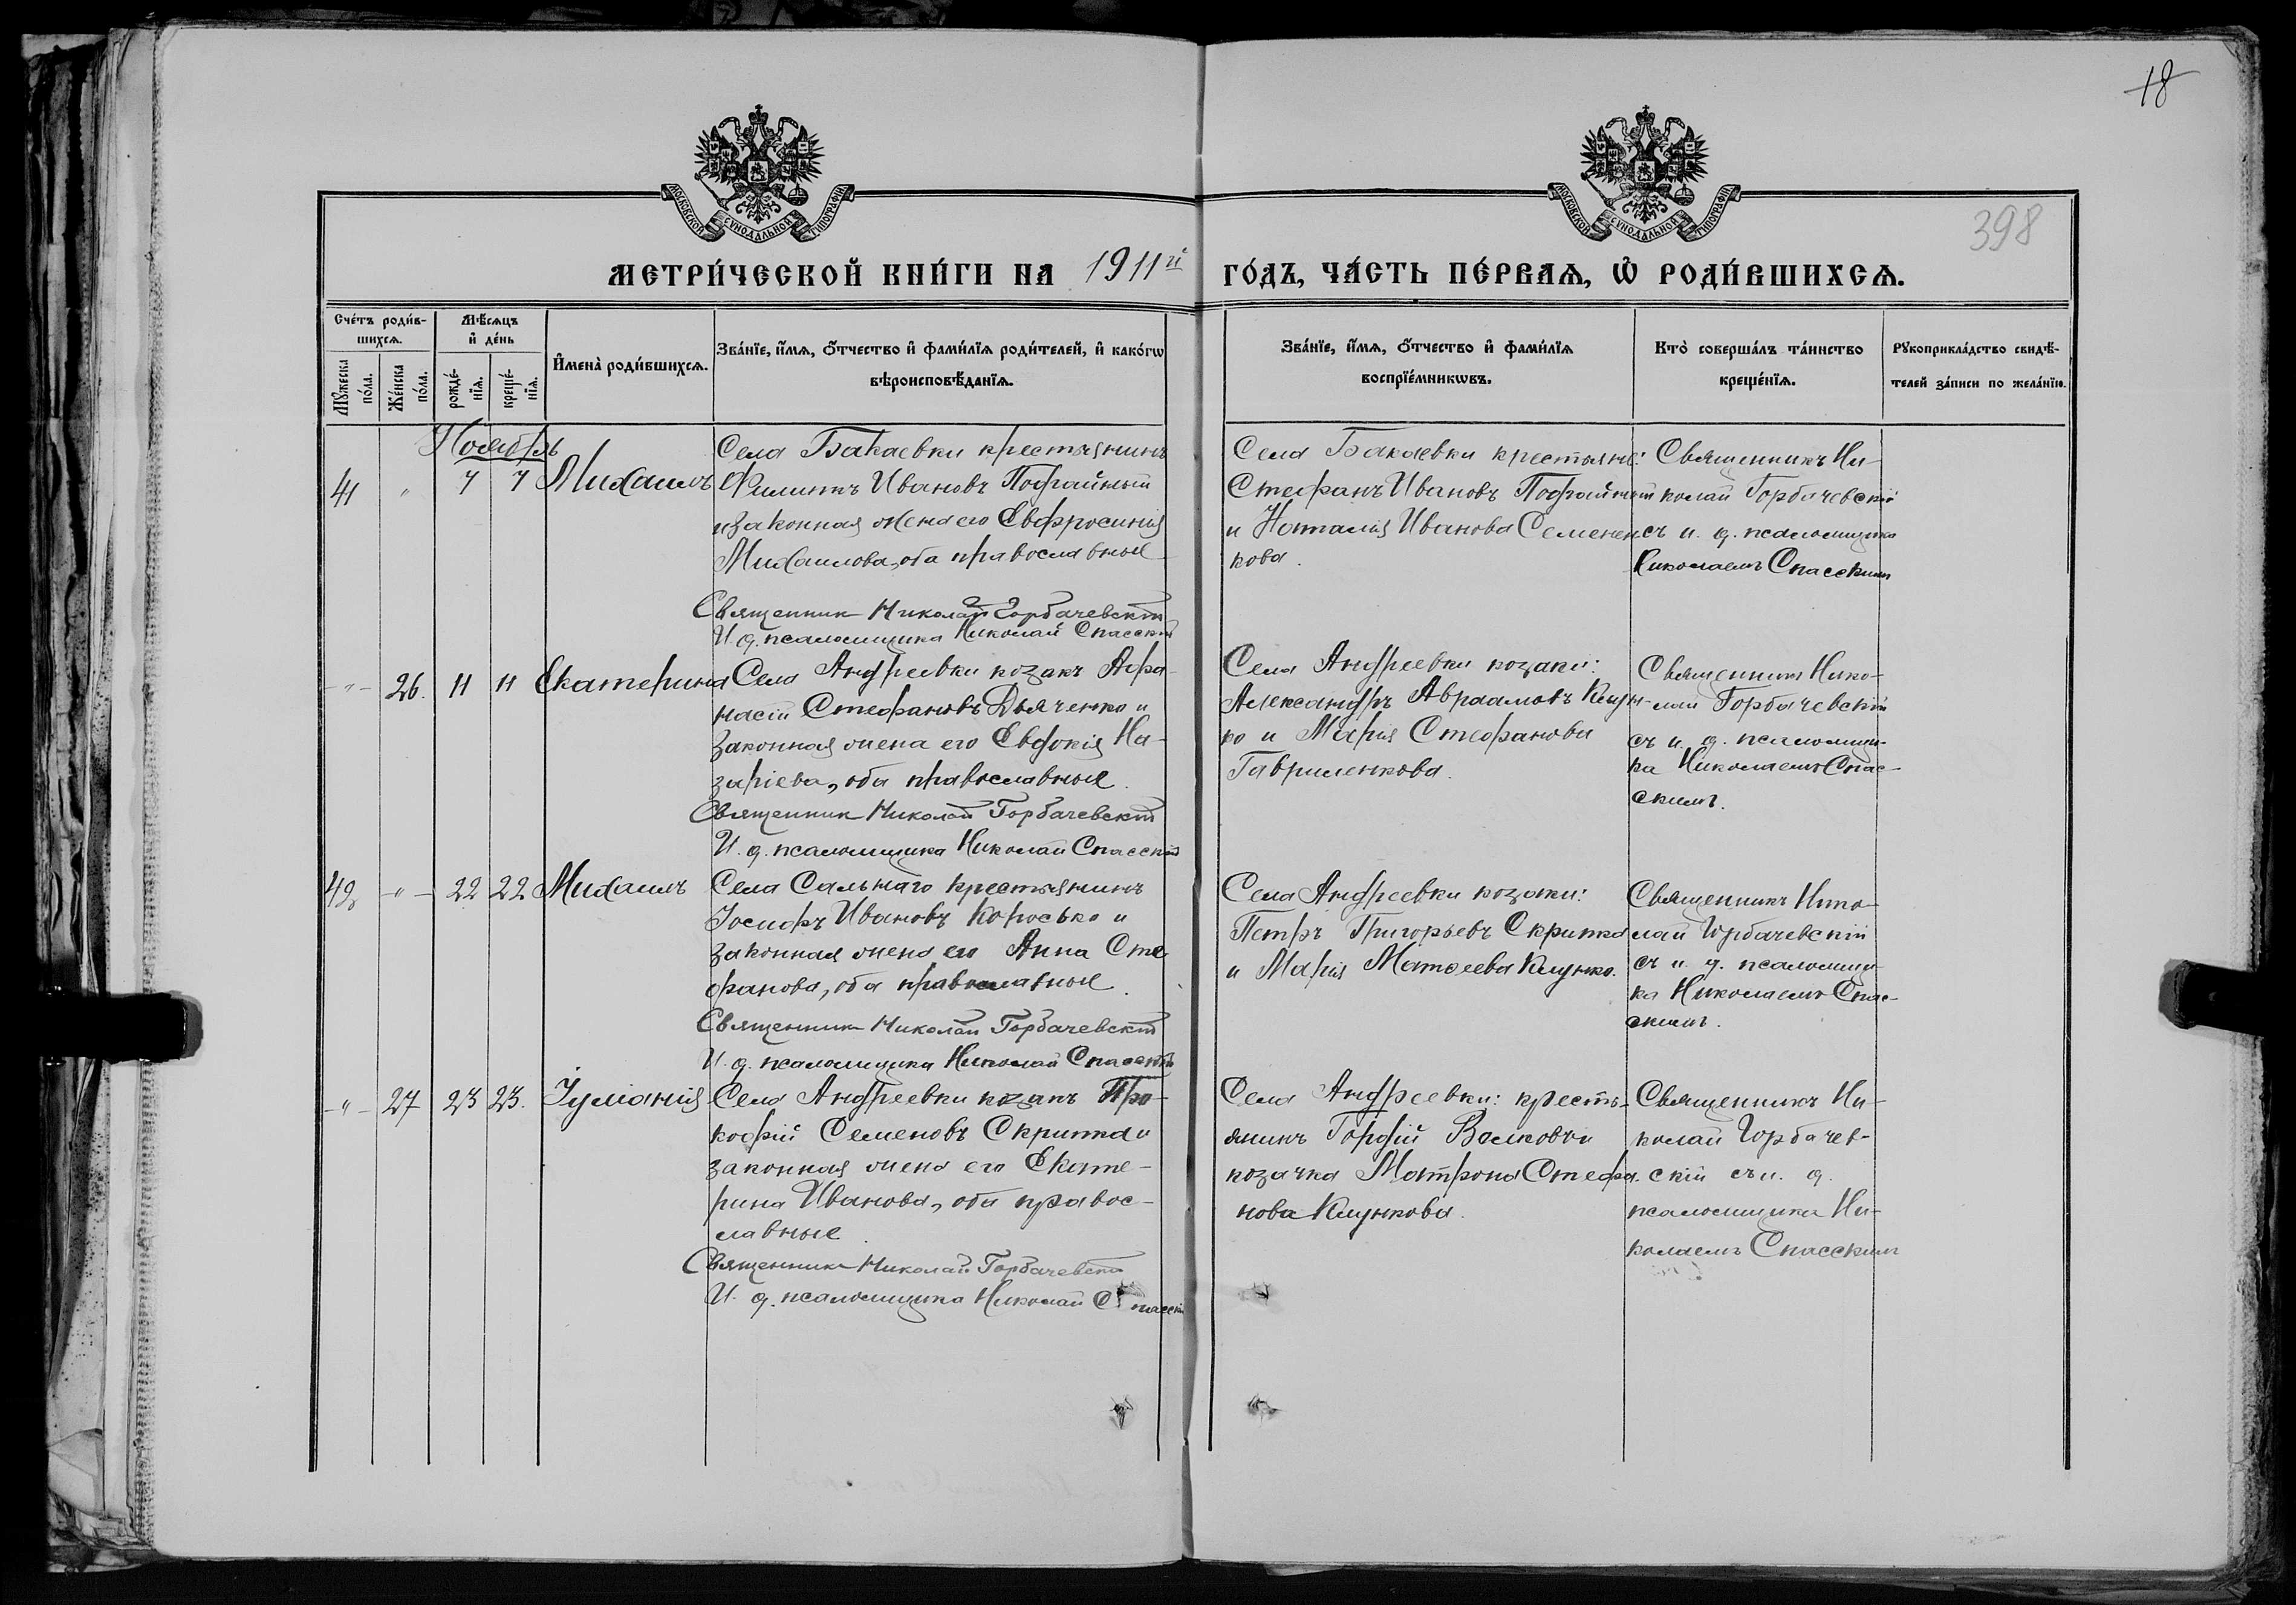 18
398
МОСКОВСКОЙ СѴНОДАЛЬНОЙ ТИПОГРАФІИ
МОСКОВСКОЙ СѴНОДАЛЬНОЙ ТИПОГРАФІИ
МЕТРИ́ЧЕСКОЙ КНИ́ГИ НА 1911й ГО́ДЪ, ЧА́СТЬ ПЕ́РВАѦ, Ѡ҆ РОДИ́ВШИХСѦ.
Сче́тъ роди́в-
шихсѧ.
Мꙋ́жеска по́ла.
Же́нска по́ла.
Мѣ́сѧцъ
и҆ де́нь
рожде́-
нїѧ.
креще́-
нїѧ.
И҆мена̀ роди́вшихсѧ.
Зва́нїе, и҆́мѧ, ѻ҆́тчество и҆ фами́лїѧ роди́телей, и҆ како́гѡ
вѣроисповѣ́данїѧ.
Зва́нїе, и҆́мѧ, ѻ҆́тчество и҆ фами́лїѧ
воспрїе́мникѡвъ.
Кто̀ соверша́лъ та́инство
креще́нїѧ.
Рꙋкоприкла́дство свидѣ́-
телей за́писи по жела́нїю.
Ноябрь
41 " 7 7 Михаилъ
Села Бакаевки крестьянинъ
Филиппъ Ивановъ
и законная жена его Евфросинія
Михаилова, оба православные
Священник Николай Горбачевскій
И. д. псаломщика Николай Спасскій
Села Бакаевки крестьяне:
Стефанъ Ивановъ
и Наталія Иванова Семенен
кова.
Священникъ Ни-
колай Горбачевскій
съ и. д. псаломщика
Николаемъ Спасским
" 26. 11 11 Екатерина
Села Андреевки козакъ Афа-
насій Стефановъ Дьяченко и
законная жена его Евдокія На-
заріева, оба православные.
Священник Николай Горбачевскій
И. д. псаломщика Николай Спасскій
Села Андреевки козаки:
Александръ Авраамовъ Клун-
ко и Марія Стефанова
Гавриленкова.
Священникъ Нико-
лай Горбачевскій
съ и. д. псаломщи-
ка Николаемъ Спас-
скимъ.
42 " 22 22 Михаилъ
Села Сальнаго крестьянинъ
Іосифъ Ивановъ Коросько и
законная жена его Анна Сте
фанова, оба православные.
Священник Николай Горбачевскій
И. д. псаломщика Николай Спасскій
Села Андреевки козаки:
Петръ Григорьевъ Скрипка
и Марія Матѳеева Клунко.
Священникъ Нико-
лай Горбачевскій
съ и. д. псаломщи-
ка Николаемъ Спас-
скимъ.
" 27 23 23. Іуліанія
Села Андреевки козакъ Про-
кофій Семеновъ Скрипка и
законная жена его Екате-
рина Иванова, оба правос-
лавные.
Священник Николай Горбачевскій
И. д. псаломщика Николай Спасскій
Села Андреевки: кресть-
янинъ Гордій Волковъ и
козачка Матрона Стефа-
нова Клункова.
Священникъ Ни-
колай Горбачев-
скій съ и. д.
псаломщика Ни-
колаемъ Спасским